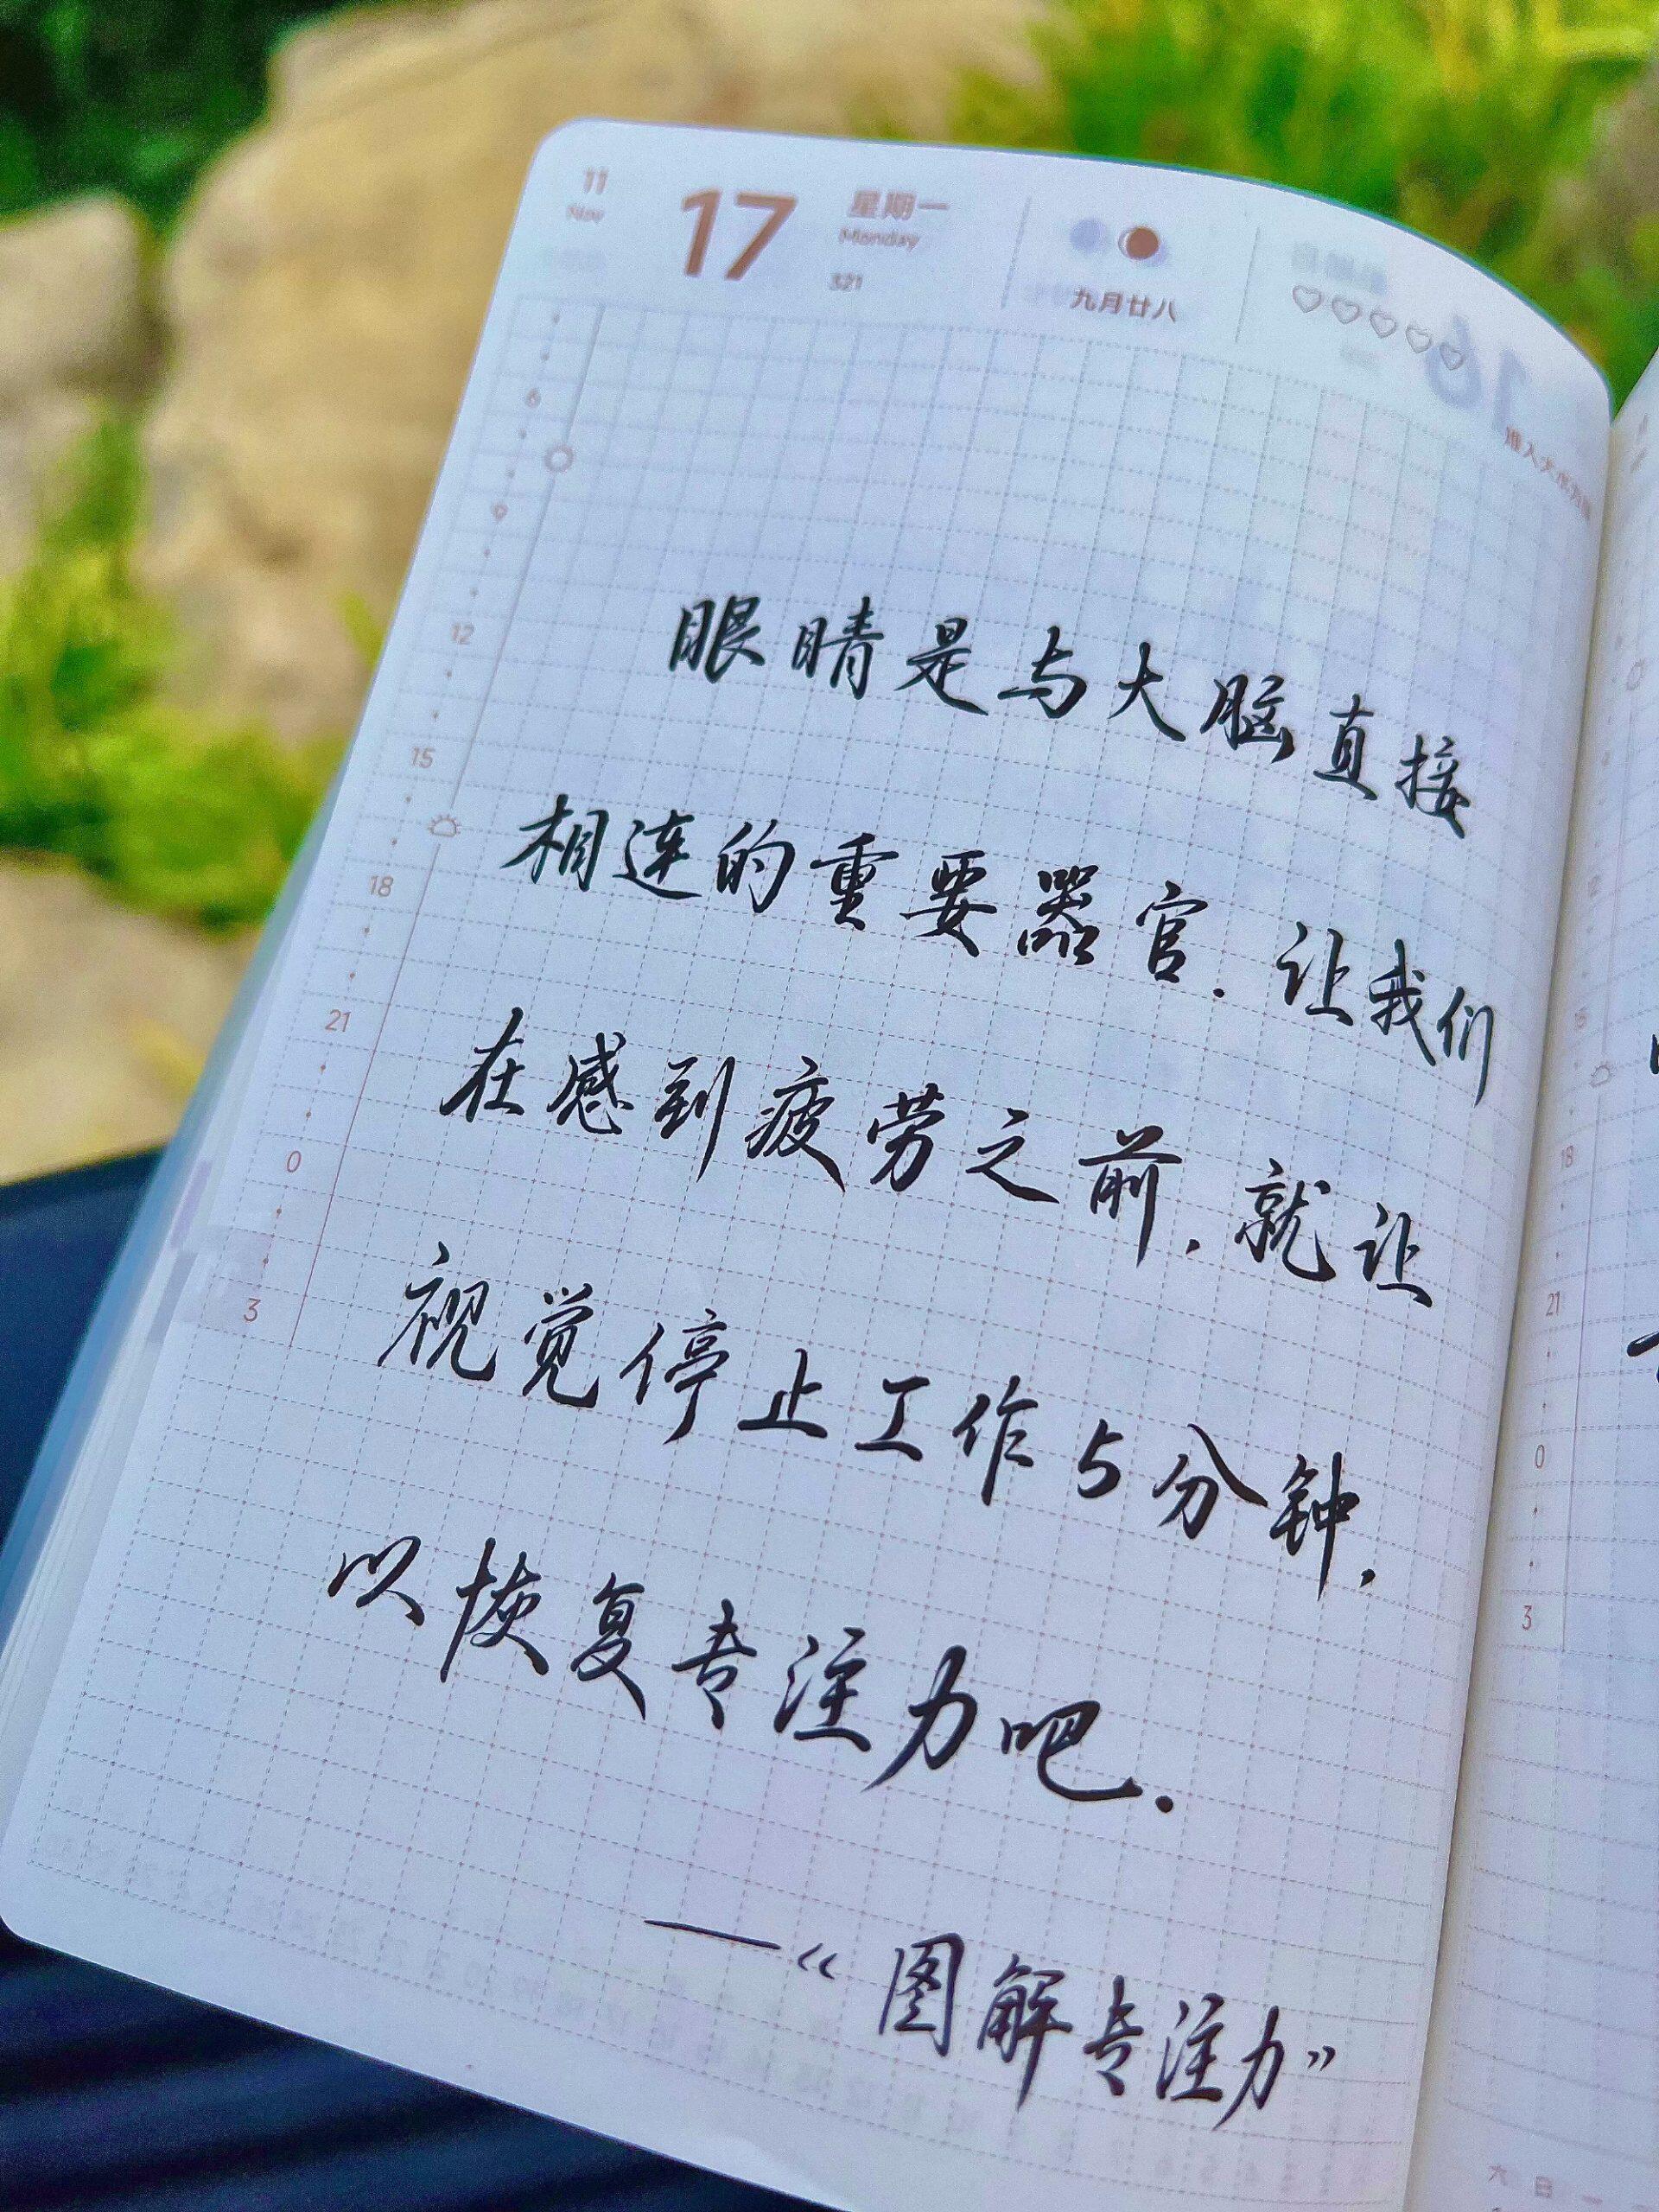 11
Nov
17
星期一
Monday
321
九月廿八
6
9
12
15
18
21
0
3
眼睛是与大脑直接
相连的重要器官.让我们
在感到疲劳之前,就让
视觉停止工作5分钟,
以恢复专注力吧.
—《图解专注力》
15
18
21
0
3
六 日 一